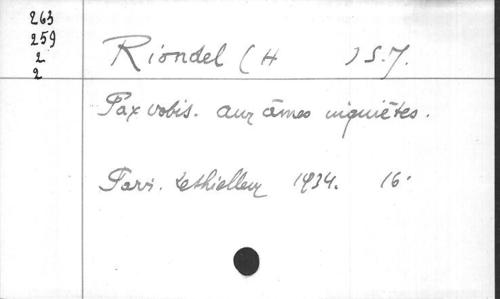 263
259
2
2
Riondel (H ) S.J.
Pax vobis. aux âmes inquiètes.
Pari. Lethielleux 1934. 16°